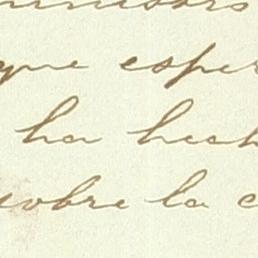 que esper
ha hech
sobre la c